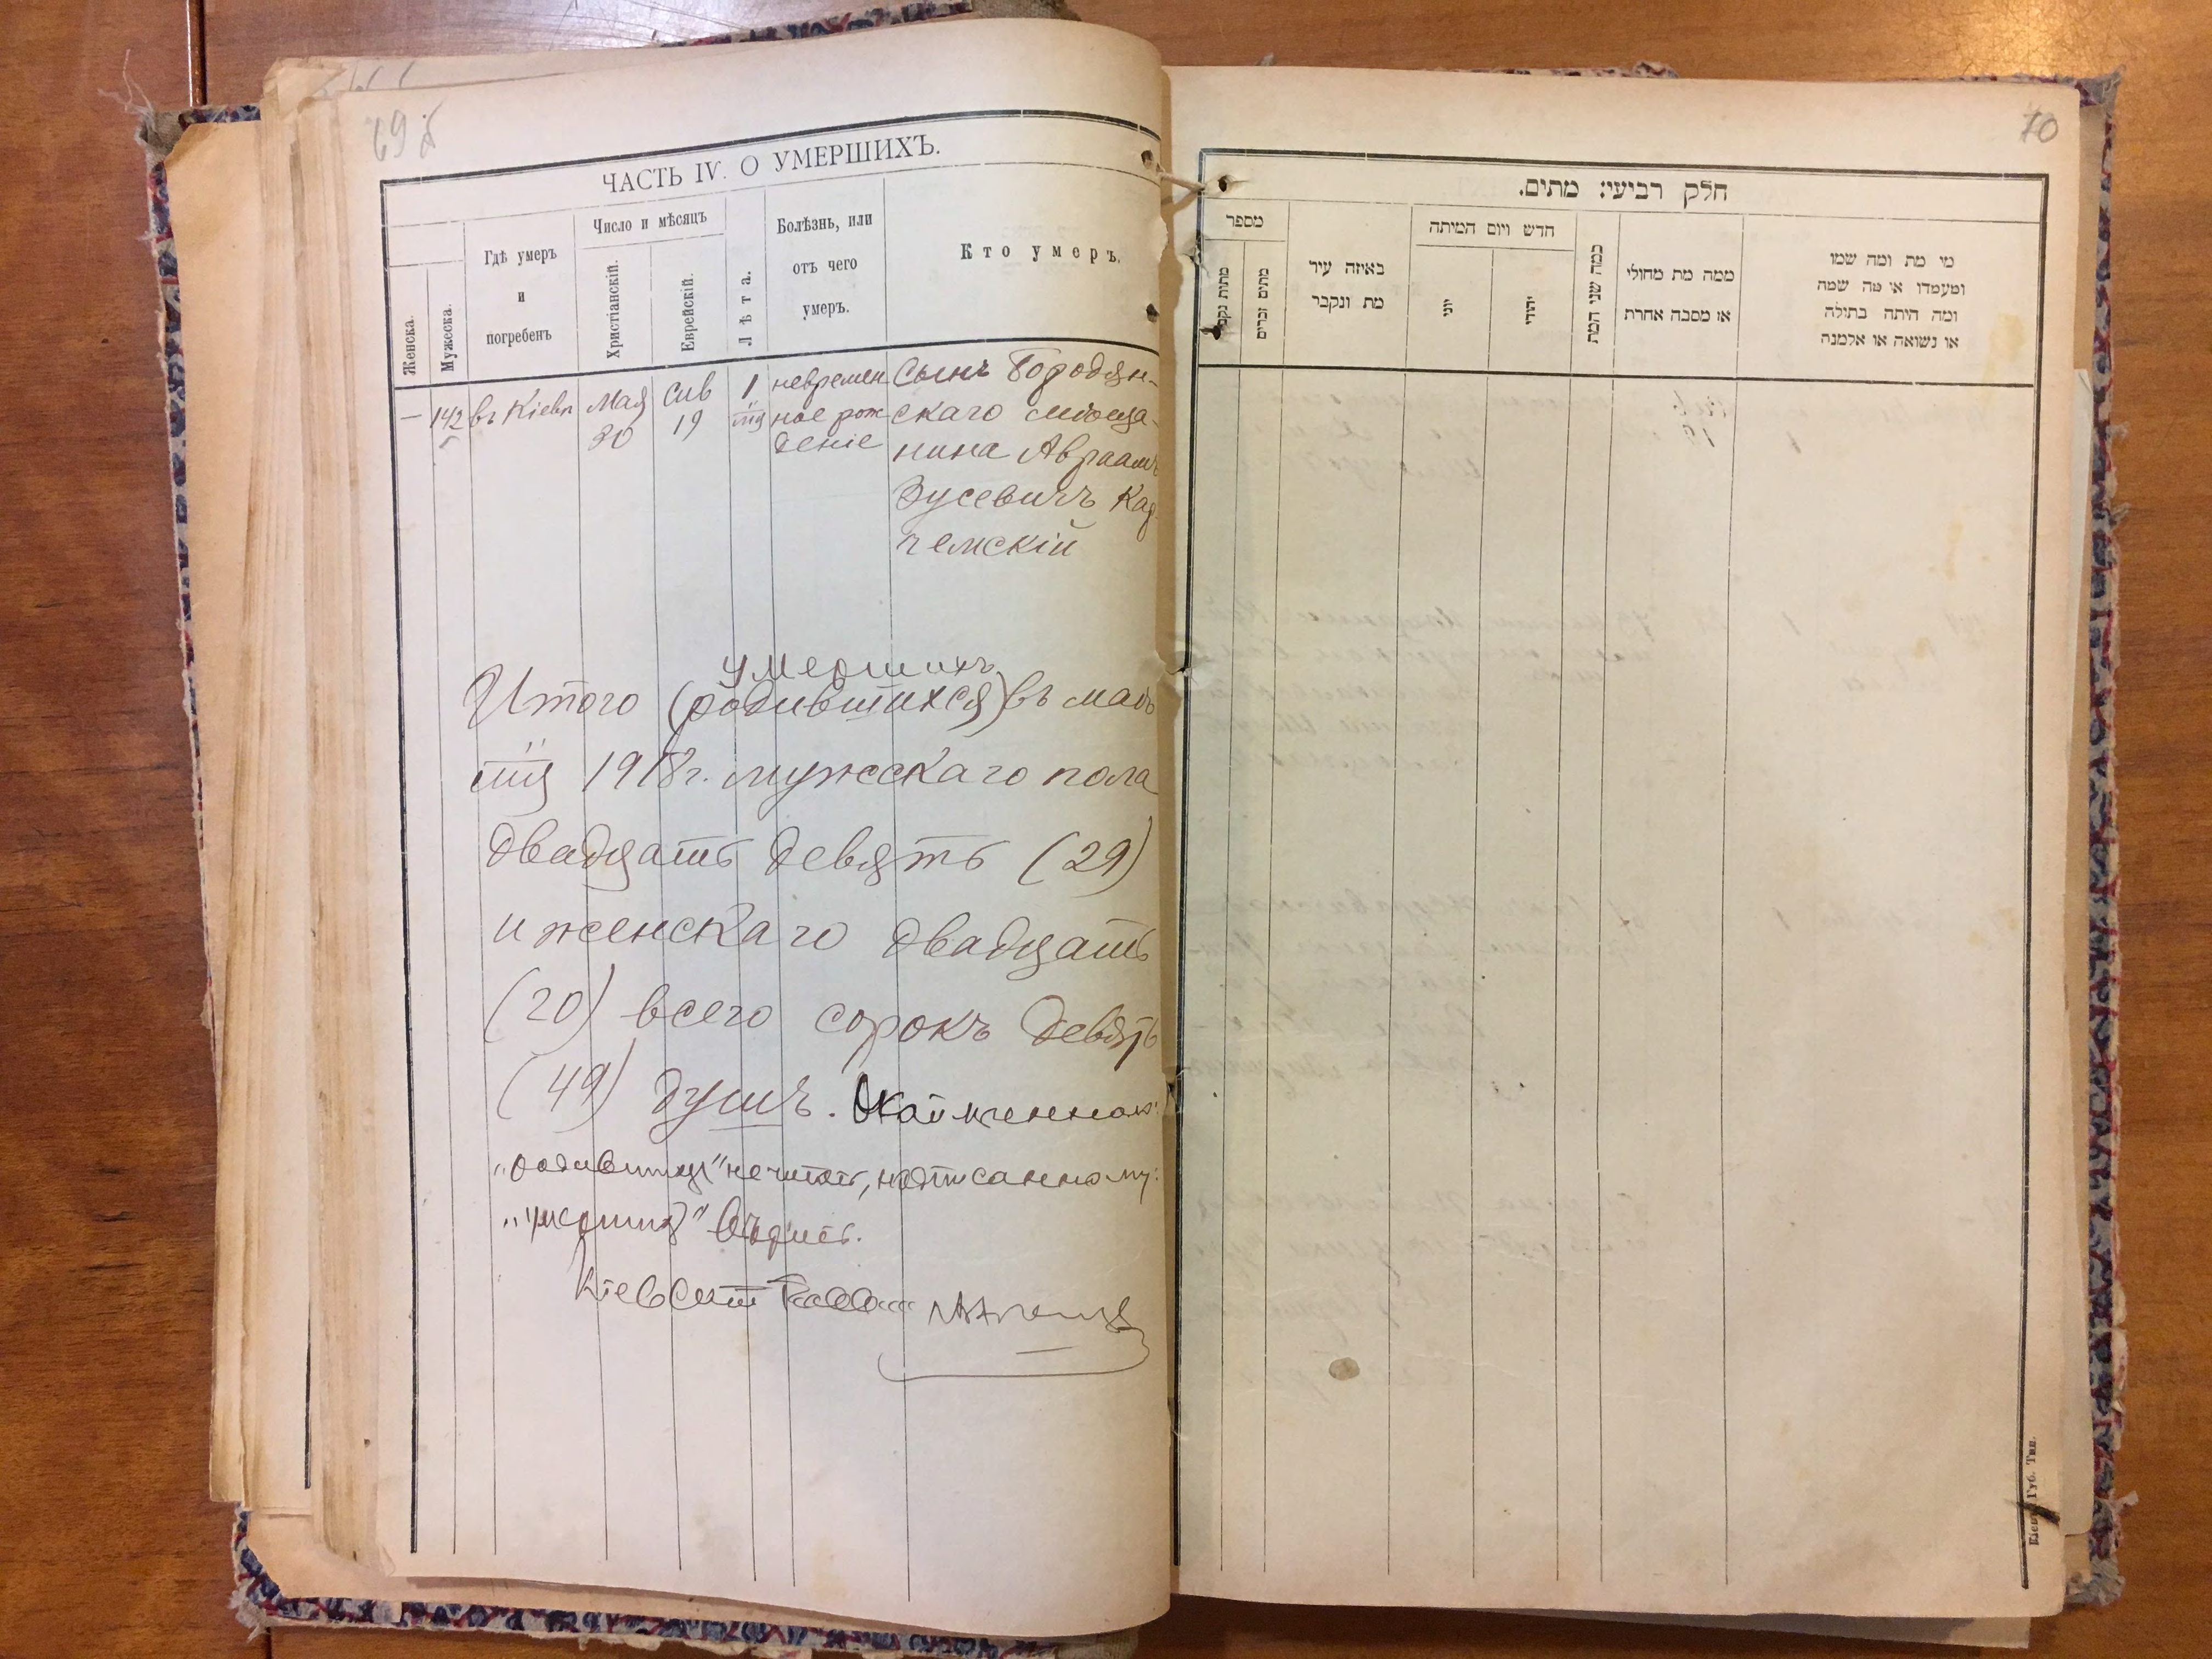 69 б
ЧАСТЬ IV. О УМЕРШИХЪ.
Женска.
Мужеска.
Гдѣ умеръ
и
погребенъ
Число и мѣсяцъ
Христіанскій.
Еврейскій.
Лѣта.
Болѣзнь, или
отъ чего
умеръ.
Кто умеръ.
—
142
въ Кіевѣ
Мая
30
Сив
19
1
м-ц
невремен
ное рож
деніе
Сынъ Бородян-
скаго мѣща-
нина Авраамъ
Зусевичъ
чемскій
умершихъ
Итого (родившихся) въ маѣ
м-цѣ 1918 г. мужскаго пола
двадцать девять (29)
и женскаго двадцать
(20) всего сорокъ девять
(49) душъ. Окаймленному:
„родившихся" не читать, надписанному:
„умершихъ" вѣрить.
Кіевскій Раввин
70
חלק רביעי: מתים.
מספר
מתות נקבות
מתים זכרים
באיזה עיר
מת ונקבר
חדש ויום המיתה
יוני
יהודי
כמה שני המת
ממה מת מחולי
או מסבה אחרת
מי מת ומה שמו
ומעמדו או מה שמה
ומה היתה בתולה
או נשואה או אלמנה
Кіевъ, Губ. Тип.